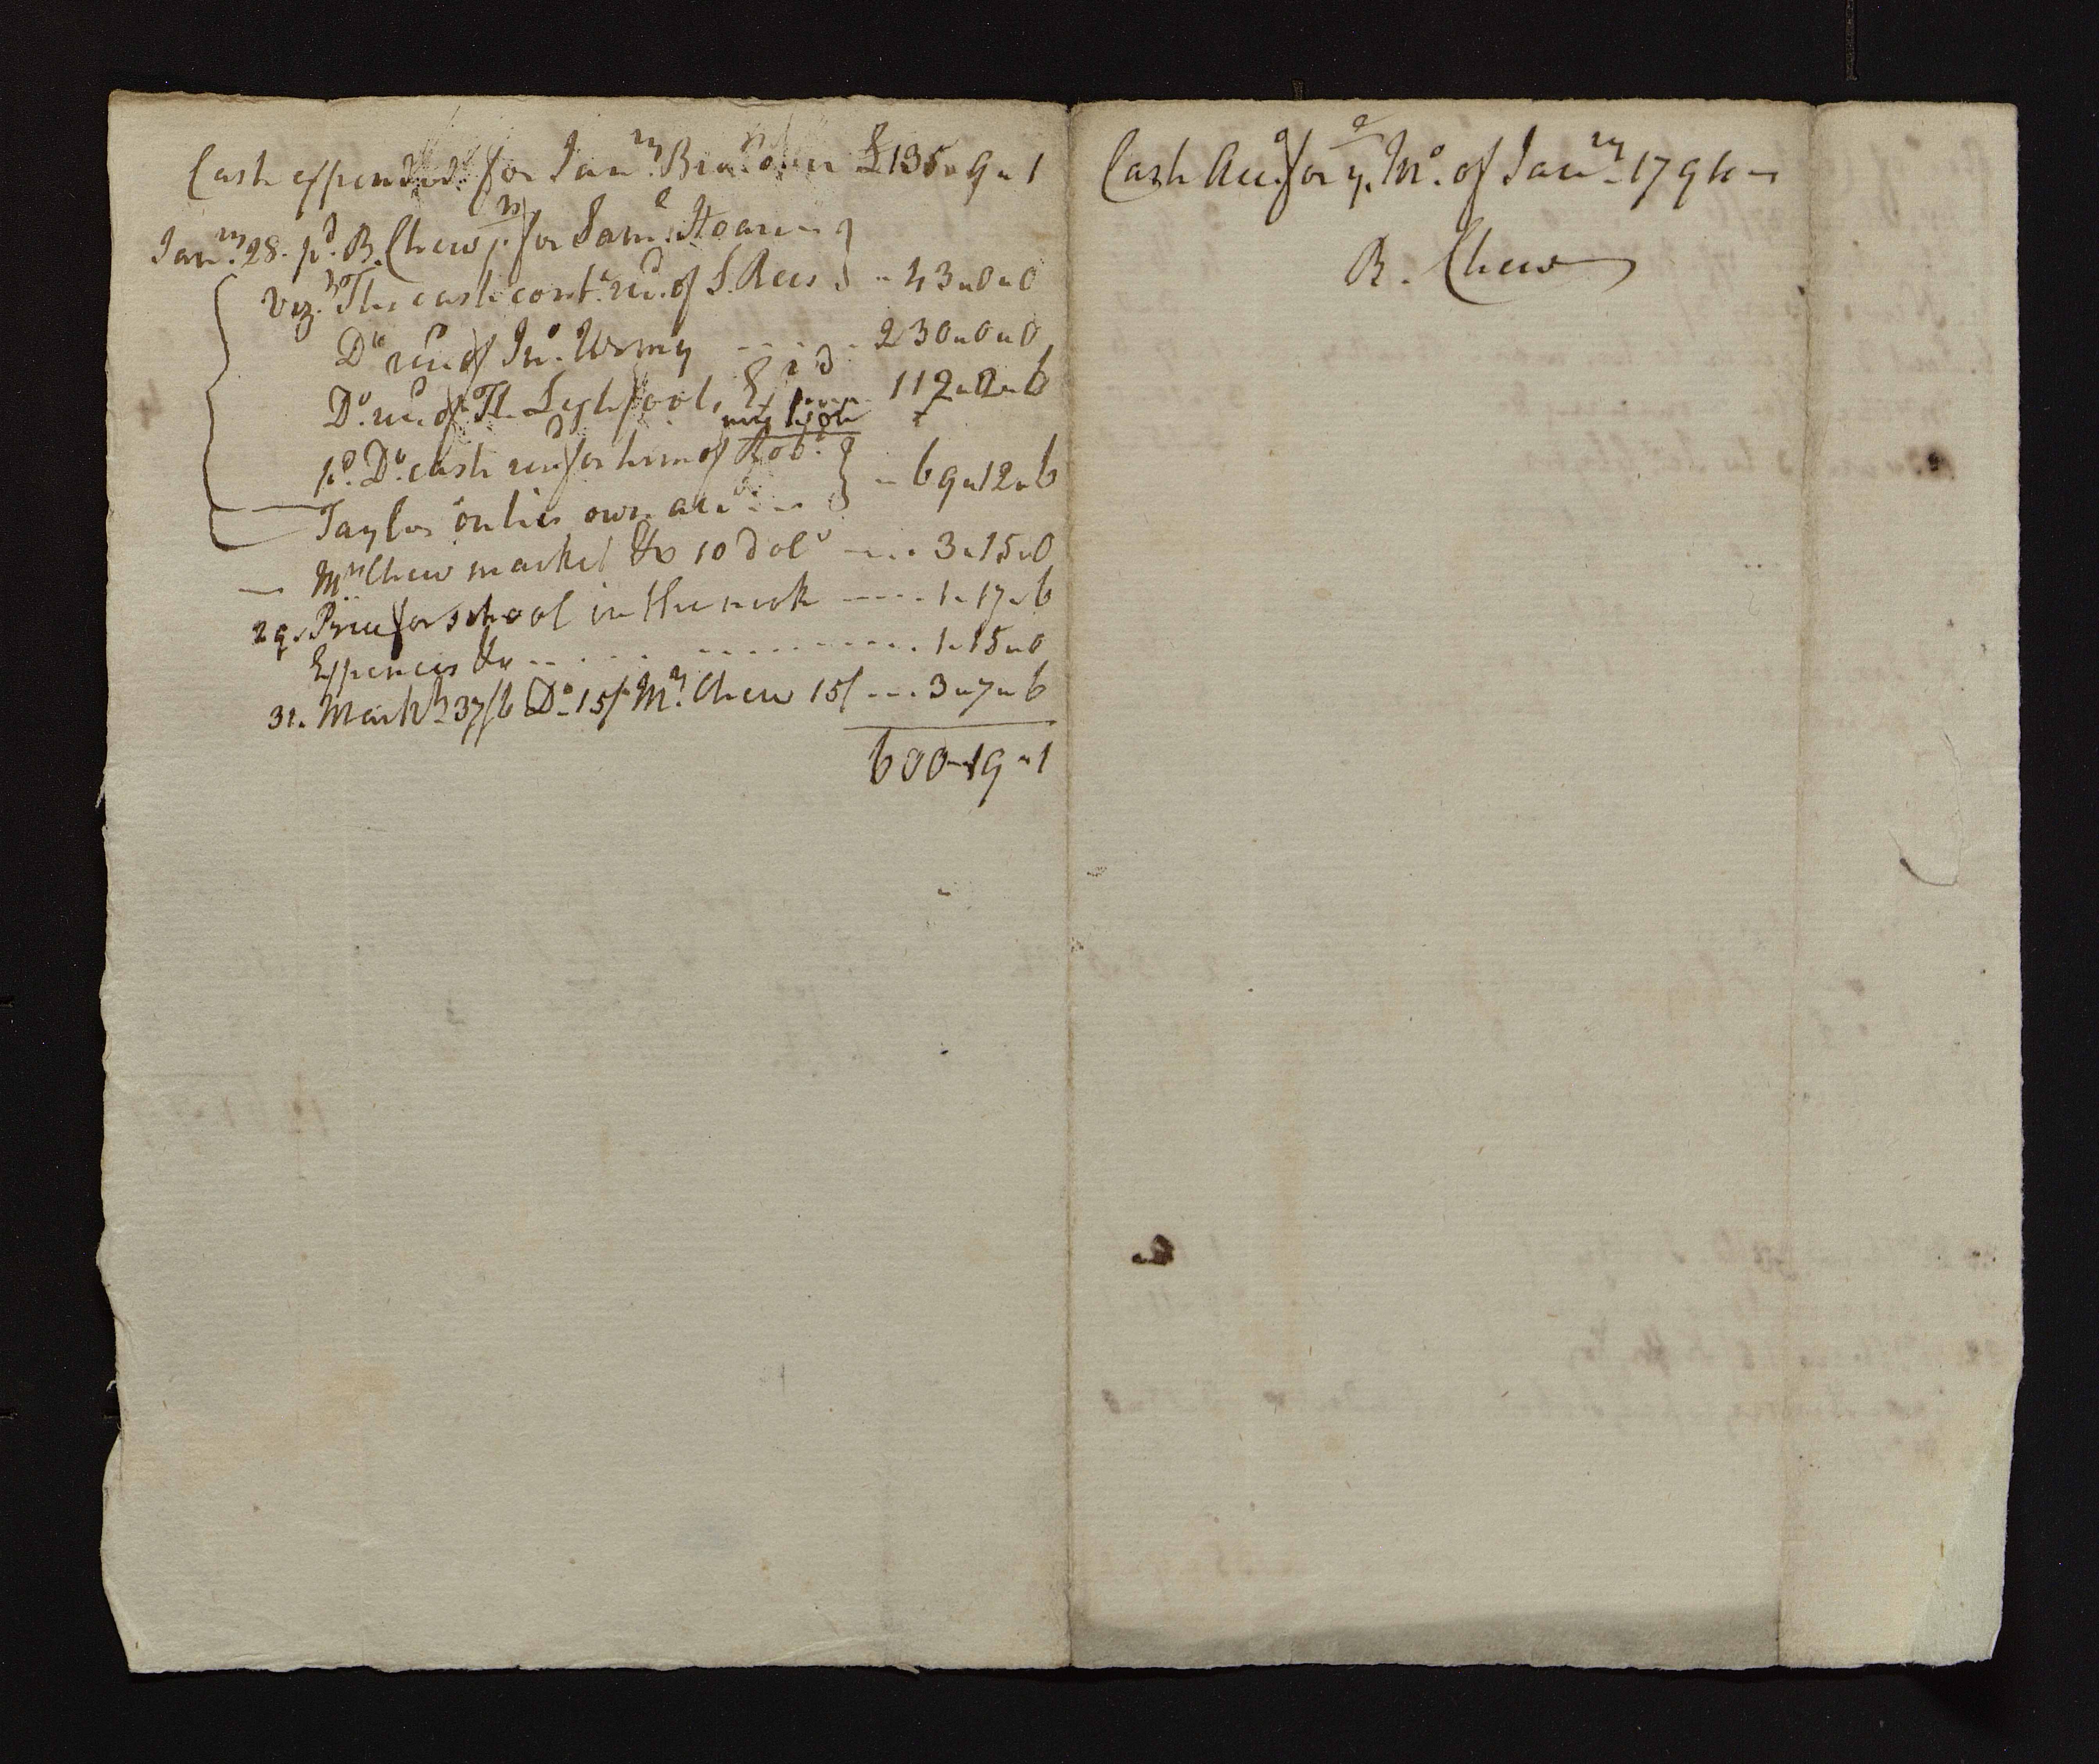 Cash expended for Janry. Bro.t over £135„9„1
Janry. 28. pd. B. Chew jr. for Saml. Hoare
Viz. The cash cont. recd. of S. Rees - 43„0„0
Do recd of Jno. Usmy - - - 230„0„0
Do. recd. of Th. Lightfoot, - 112„2„6
pd. Do. cash recd for him of Robt.
Taylor on his own acct - - 69„12„6
— Mrs Chew market &c 10 dolo - - - 3„15„0
29. Price for school in the neck - - - - 1„17„6
Expences &c - - - - - - - - 1„15„0
31. Markt. 37/6 Do. 15/ Mrs. Chew 15/ - - - 3„7„6
600„19„1
Cash Acct. for ye. Mo. of Janry. 179
B. Chew